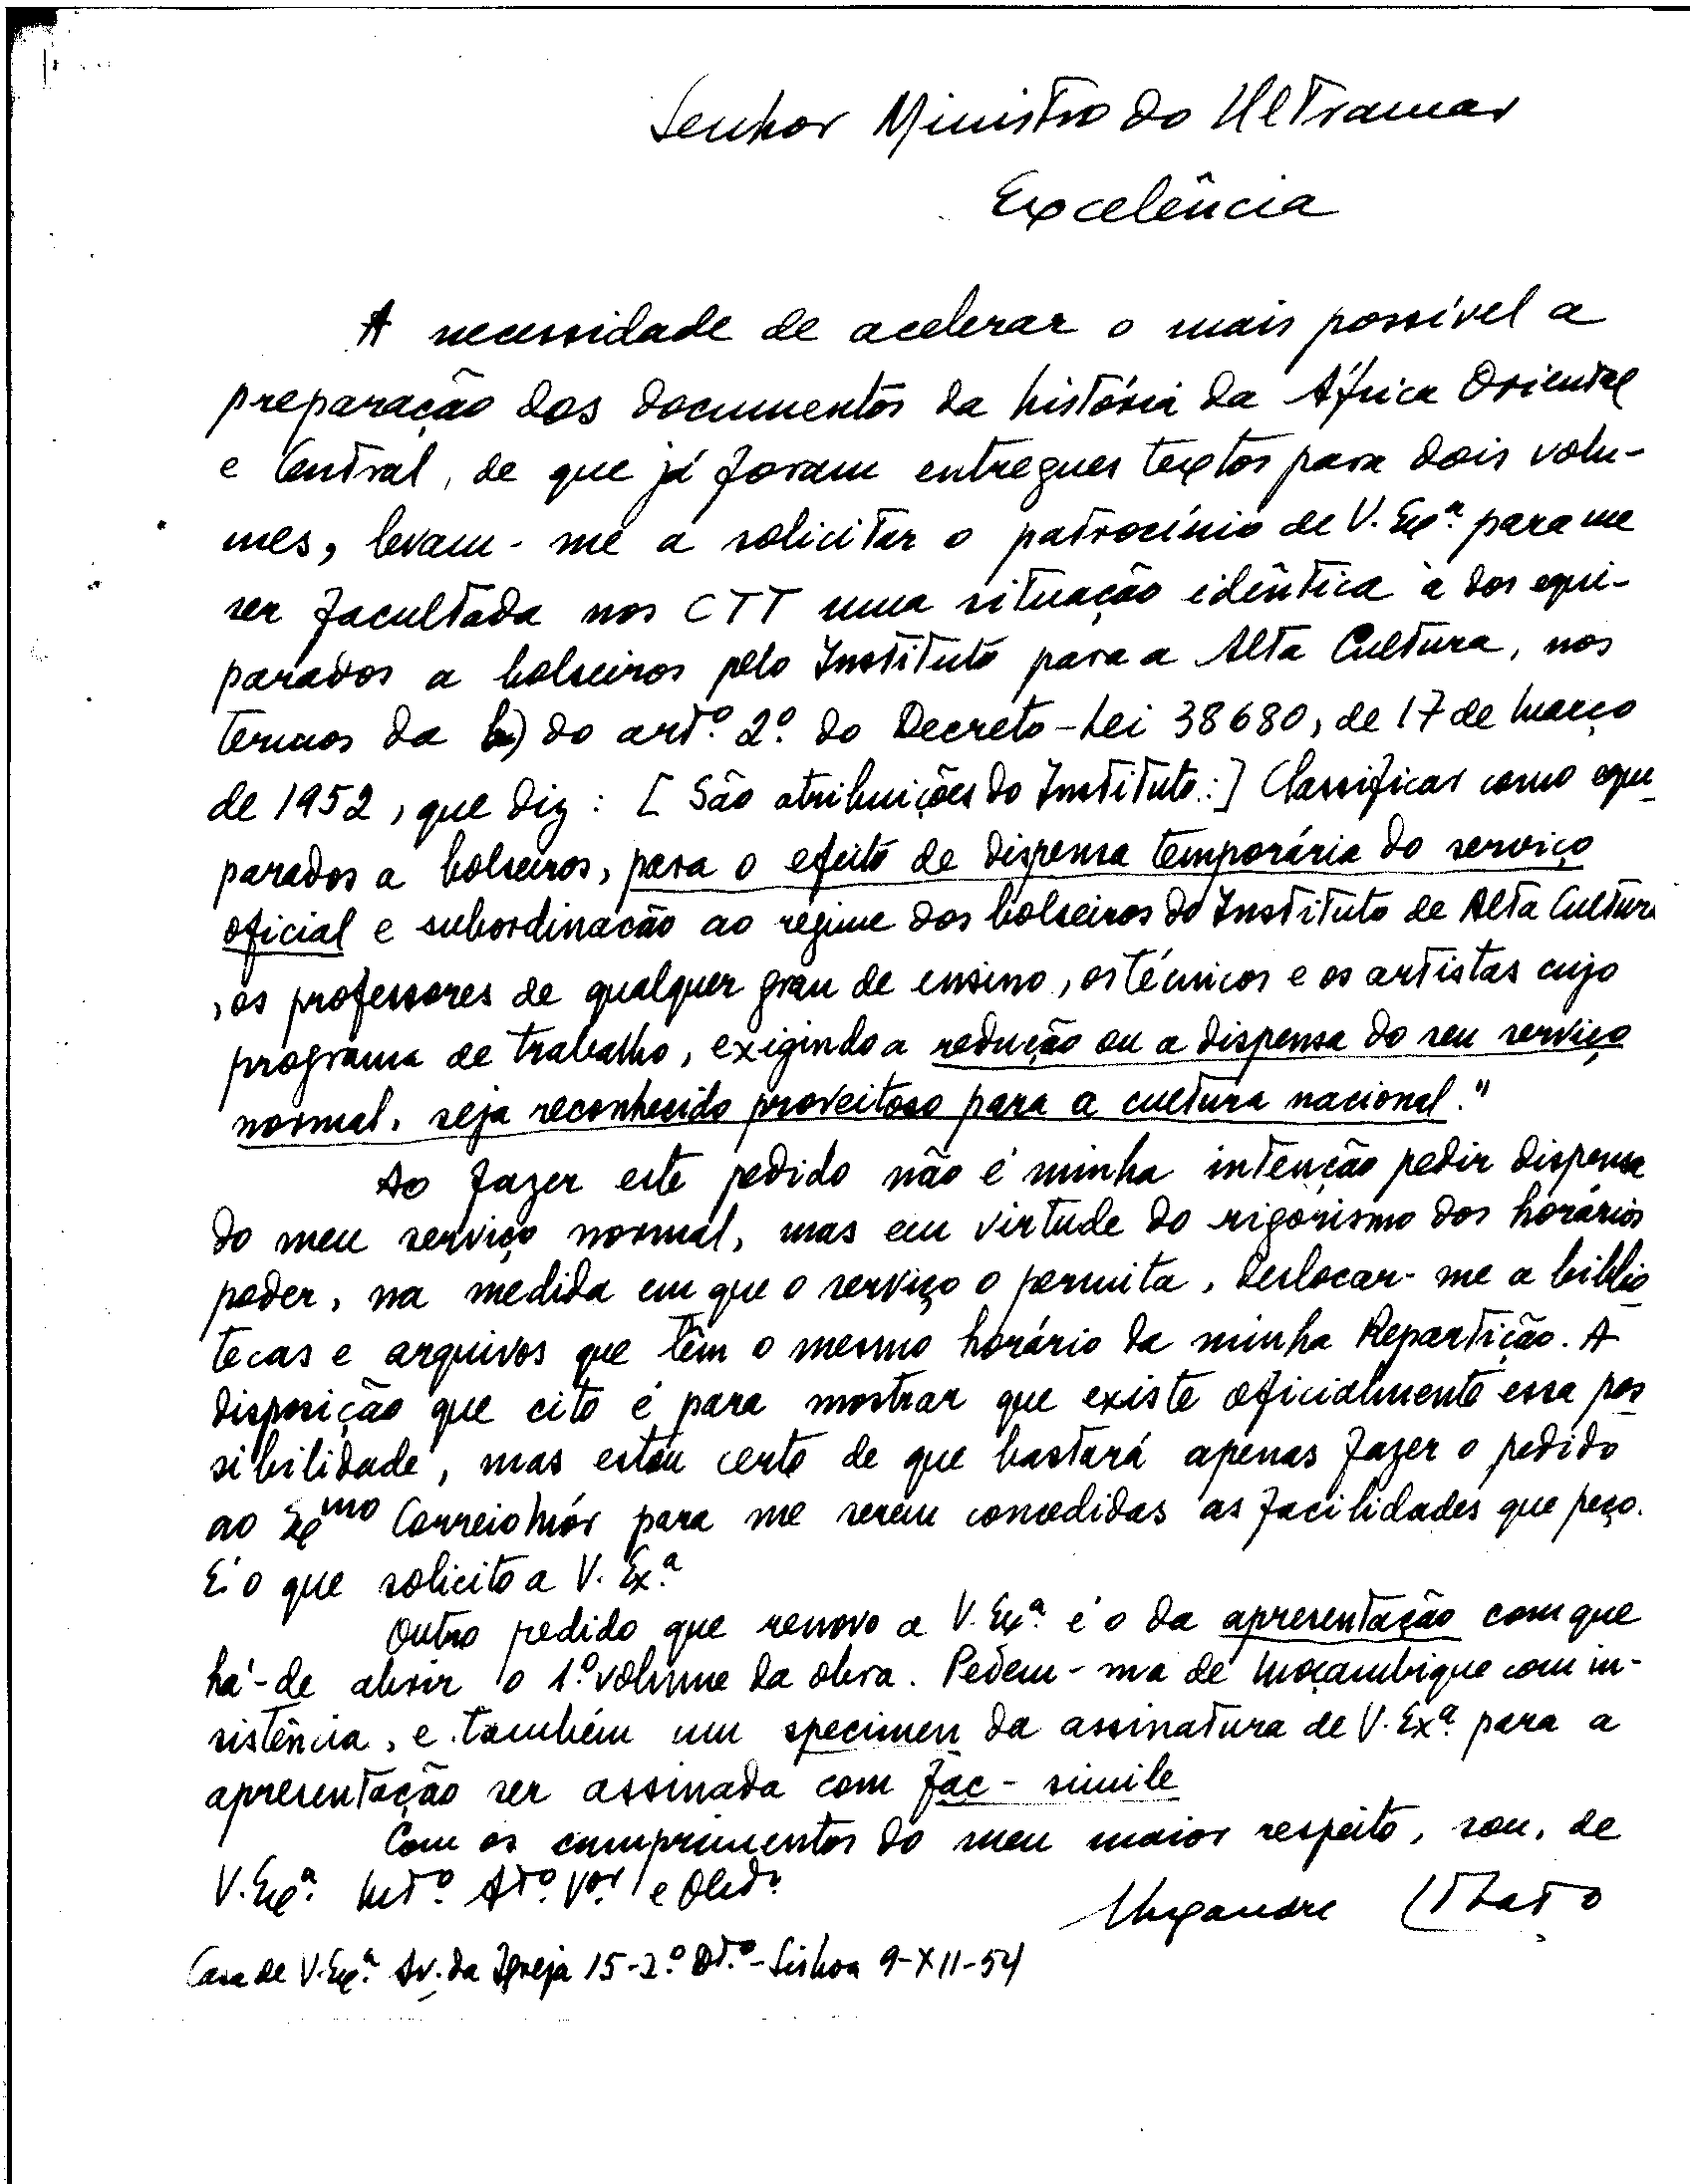 Senhor Ministro do Ultramar
Excelência
A necessidade de acelerar o mais possível a
preparação dos documentos da história da África Oriental
e Central, de que já foram entregues textos para dois volu-
mes, levam-me a solicitar o patrocínio de V. Exª. para me
ser facultada nos CTT uma situação idêntica à dos equi-
parados a bolseiros pelo Instituto para a Alta Cultura, nos
termos da b) do artº. 2º. do Decreto-Lei 38680, de 17 de Março
de 1952, que diz: [São atribuições do Instituto:] Classificar como equi
parados a bolseiros, para o efeito de dispensa temporária do serviço
oficial e subordinação ao regime dos bolseiros do Instituto de Alta Cultura
, os professores de qualquer grau de ensino, os técnicos e os artistas cujo
programa de trabalho, exigindo a redução ou a dispensa do seu serviço
normal, seja reconhecido proveitoso para a cultura nacional."
Ao fazer este pedido não é minha intenção pedir dispensa
do meu serviço normal, mas em virtude do rigorismo dos horários
poder, na medida em que o serviço o permita, deslocar-me a biblio
tecas e arquivos que têm o mesmo horário da minha Repartição. A
disposição que cito é para mostrar que existe oficialmente essa pos
sibilidade, mas estou certo de que bastará apenas fazer o pedido
ao Exmo Correio Mór para me serem concedidas as facilidades que peço.
É o que solicito a V. Ex.ª
Outro pedido que renovo a V. Exª. é o da apresentação com que
há-de abrir o 1.º volume da obra. Pedem-ma de Moçambique com in-
sistência, e também um specimen da assinatura de V. Exª. para a
apresentação ser assinada com fac-simile
Com os cumprimentos do meu maior respeito, sou, de
V. Exª. Mtº. Atº. Vor. e Obdº.
Alexandre Lobato
Casa de V. Exª. Av. da Igreja 15-2.º Dt.º - Lisboa 9-XII-54